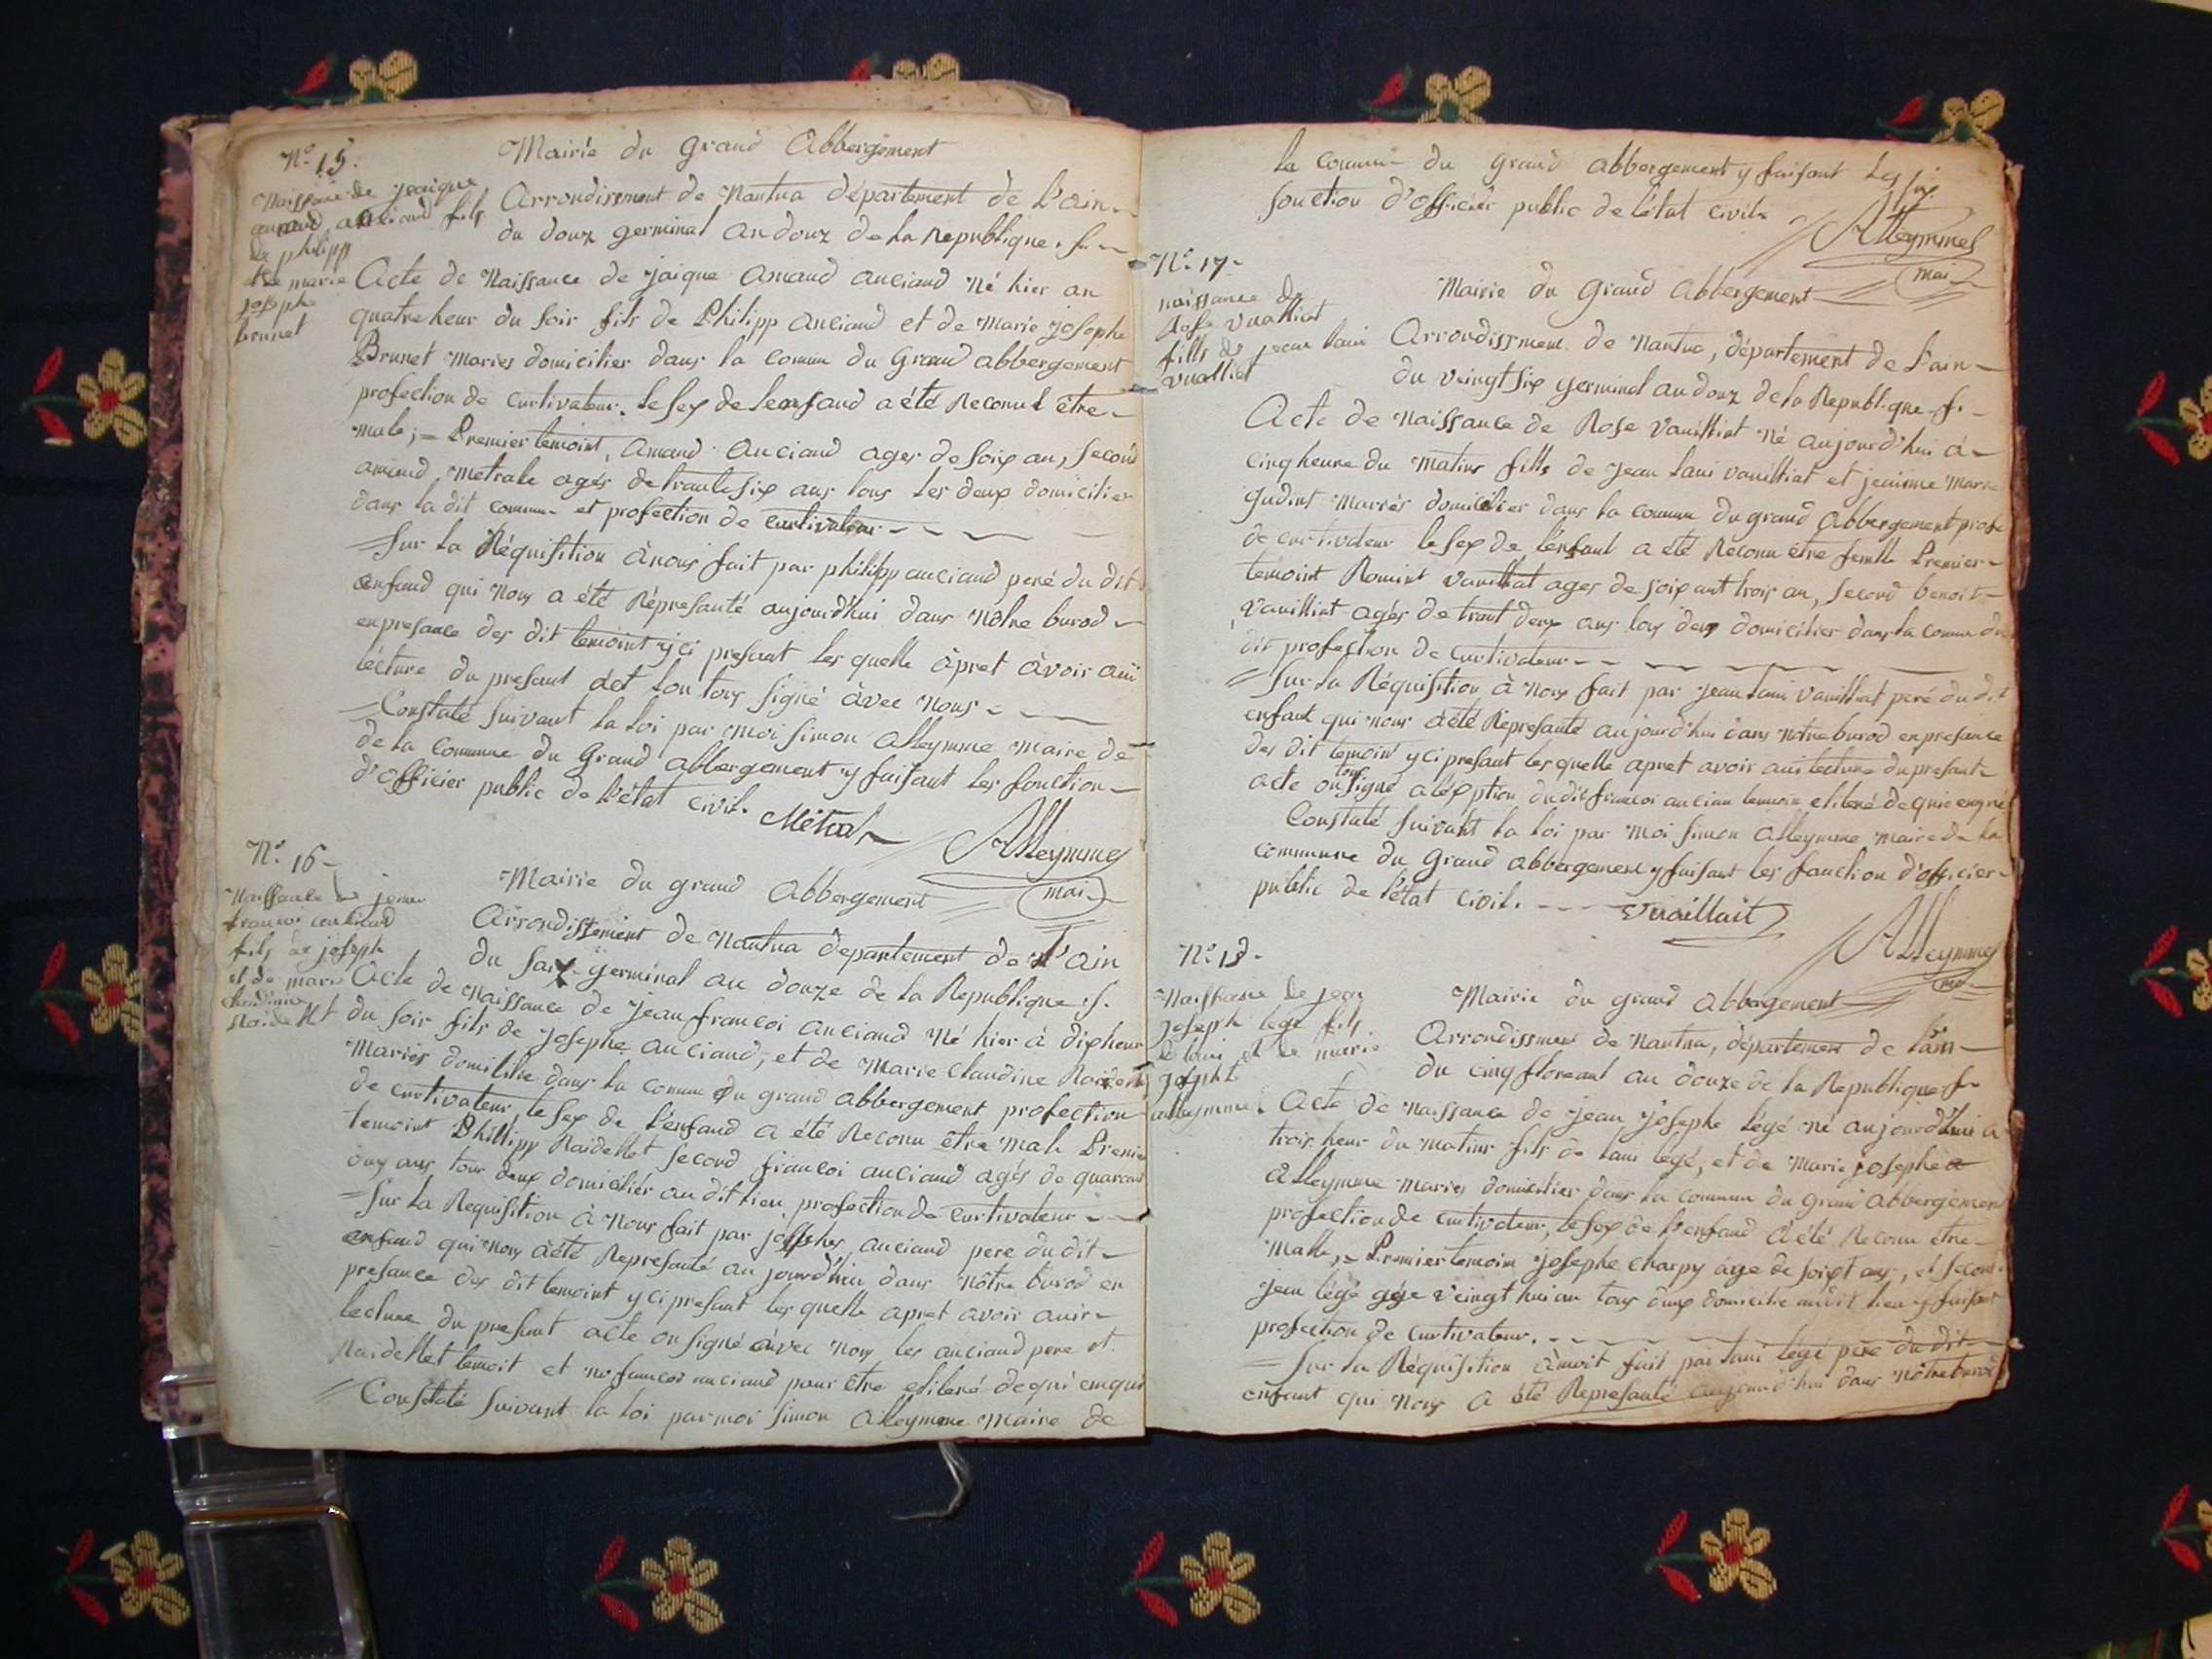 N.o 15.
Mairie du grand Abbergement
Naissance de jaique
amand anciand fils
de philipp
et de marie
josephe
brunet
Arrondissement de Nantua département de L'ain
du douz germinal an douz de la Republique f.
Acte de Naissance de jaique Amand anciand Né hier an
quatre heur du soir fils de Philipp anciand et de Marie josephe
Brunet Maries domicilier dans la comun du Grand abbergement
profection de curtivateur. le sex de lenfand a été Reconut être
male; = Premier temoint, Amand anciand ages de soix an, second
amand Metrale agés de trante six ans tous les deux domicilier
dans la dit commun et profection de curtivateur
= Sur la Réquisition à nous fait par philipp anciand peré du dit
enfand qui nous a été Répresanté aujourd'hui dans nôtre burod
enpresance des dit temoint yci presant les quelle àpret àvoir auii
lécture du presant act lon tous signé àvec nous
= Constaté suivant la loi par moi Simon Alleymme maire de
de la commune du Grand abbergement y faisant les fonction
d'officier public de l'état civil. Métral
Alleymme
mai
N.o 16
Naissance de jean
francoi anciand
fils de joseph
et de marie
claudine
Raidellet
Mairie du grand Abbergement
Arrondissement de Nantua departement de L'ain
du saix germinal an douze de la Republique f.
Acte de Naissance de jean francoi anciand Né hier à dix heur
du soir fils de josephe anciand, et de Marie claudine Raidellet
Mariés domicilie dans la comun du grand abbergement profection
de curtivateur, le sex de l'enfand a été Reconu être male Premier
temoint Phillipp Raidellet second francoi anciand agés de quarant
ouz ans tous deux domicilier au dit lieu, profection de curtivateur
= Sur la Requisition à Nous fait par josephe, anciand pere du dit
enfand qui nous àété Represanté au jourd'hui dans nôtre burod en
presance des dit temoint yci presant les quelle apret avoir auir
lecture du presant acte on signé àvec nous les anciand pere et
Raidellet temoit et no francoi anciand pour être etiberé de qui enquis
= Constaté suivant la loi par moi Simon Alleymme maire de
la comun du grand abbergement y faisant les
fonction d'officier public de l'état civil
Alleymme
mai
N.o 17
naissance de
Rose vualliat
fille de jean laui
vualliat
Mairie du Grand Abbergement
Arrondissment de Nantua, département de L'ain
du veingt six germinal an douz de la Republique f.
Acte de Naissance de Rose Vauilliat Né aujourd'hui à
cinq heure du matins fille de jean laui vauilliat et jeanne Marie
gudint Mariés domicilier dans la comun du grand Abbergement profe
de curtivateur le sex de l'enfant a été Reconu être femlle Premier
temoint Romint Vauilliat ages de soix ant trois an, second benoit
Vauilliat agés de trant deux ans tous deux domicilier dans la comun du
dit profection de curtivateur
= Sur la Réquisition à Nous fait par jean laui vauilliat peré du dit
enfant qui nous àété Represanté aujourd'hui dans nôtre burod enpresance
des dit temoint yci presant les quelle apret avoir auis lecture du presant
acte on tous signé aléxption dudit francoi anciau temoin etiberé de qui enquis
Constaté suivant la loi par moi Simon Alleymme maire de la
commune du Grand abbergement y faisant les fonction d'officier
public de l'état civil. Vuaillait
Alleymme
mai
N.o 18
Naissance de jean
joseph légé fils
de laui et de marie
josepht
alleymme
Mairie du grand Abbergement
Arrondissment de Nantua, département de l'ain
du cinq floreaul an douze de la Republique f.
Acte de Naissance de jean josephe légé né aujourd'hui à
trois heur du matins fils de laui légé, et de Marie josephe
Alleymme Maries domicilier dans la commun du grand abbergement
profection de curtivateur, le sex de l'enfand à été Reconu etre
malle, = Premier temoin josephe charpy àge de soixt ans, et second
jean légé àge veingt hui an tous deux domicilie audit lieu y faisant
profection de curtivateur.
= Sur la Réquisition ànoit fait par laui légé pere du dit
enfant qui nous a été Represanté aujourd'hui dans nôtre burod